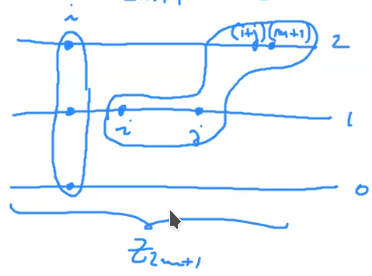 i
(i+j)(m+1) 2
1
i j
0
Z_{2m+1}